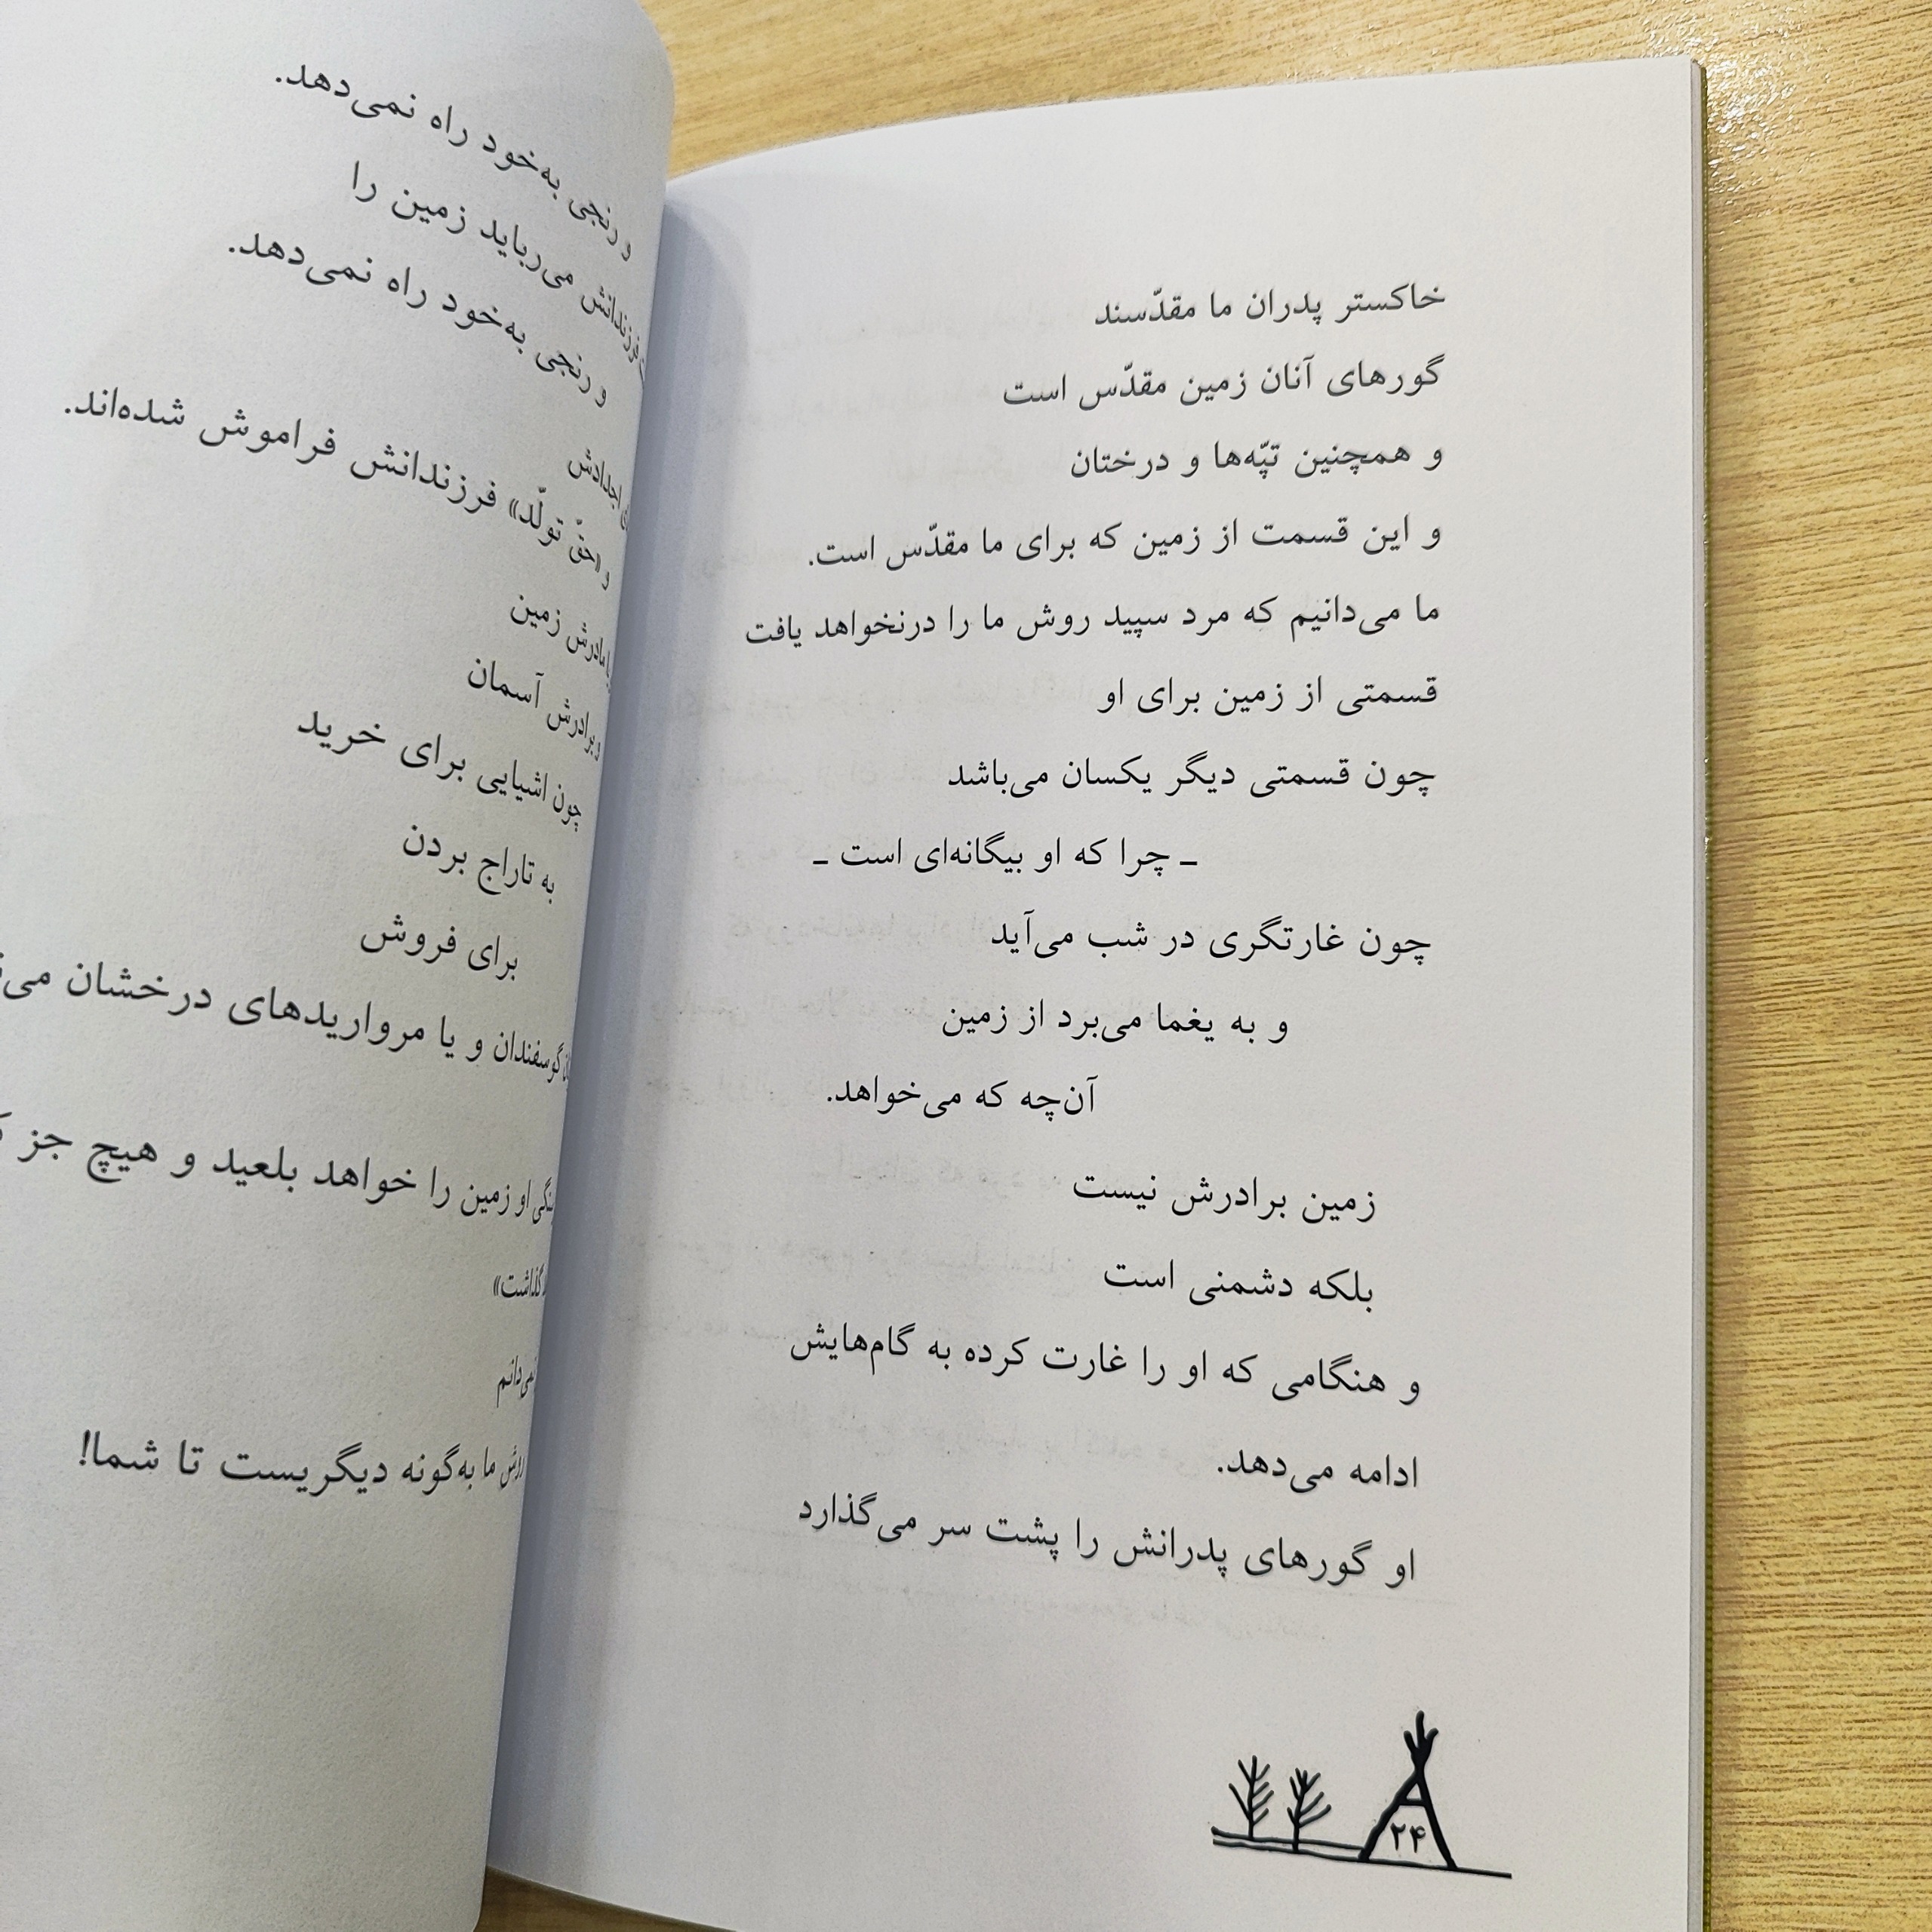 خاکستر پدران ما مقدّسند
گورهای آنان زمین مقدّس است
و همچنین تپّه‌ها و درختان
و این قسمت از زمین که برای ما مقدّس است.
ما می‌دانیم که مرد سپید روش ما را درنخواهد یافت
قسمتی از زمین برای او
چون قسمتی دیگر یکسان می‌باشد
ـ چرا که او بیگانه‌ای است ـ
چون غارتگری در شب می‌آید
و به یغما می‌برد از زمین
آن‌چه که می‌خواهد.
زمین برادرش نیست
بلکه دشمنی است
و هنگامی که او را غارت کرده به گام‌هایش
ادامه می‌دهد.
او گورهای پدرانش را پشت سر می‌گذارد
۲۴
و رنجی به‌خود راه نمی‌دهد.
فرزندانش می‌رباید زمین را
و رنجی به‌خود راه نمی‌دهد.
اجدادش
و «حقّ تولّد» فرزندانش فراموش شده‌اند.
مادرش زمین
و برادرش آسمان
چون اشیایی برای خرید
به تاراج بردن
برای فروش
گوسفندان و یا مرواریدهای درخشان
او زمین را خواهد بلعید و هیچ جز
نمی‌دانم
روش ما به‌گونه دیگریست تا شما!